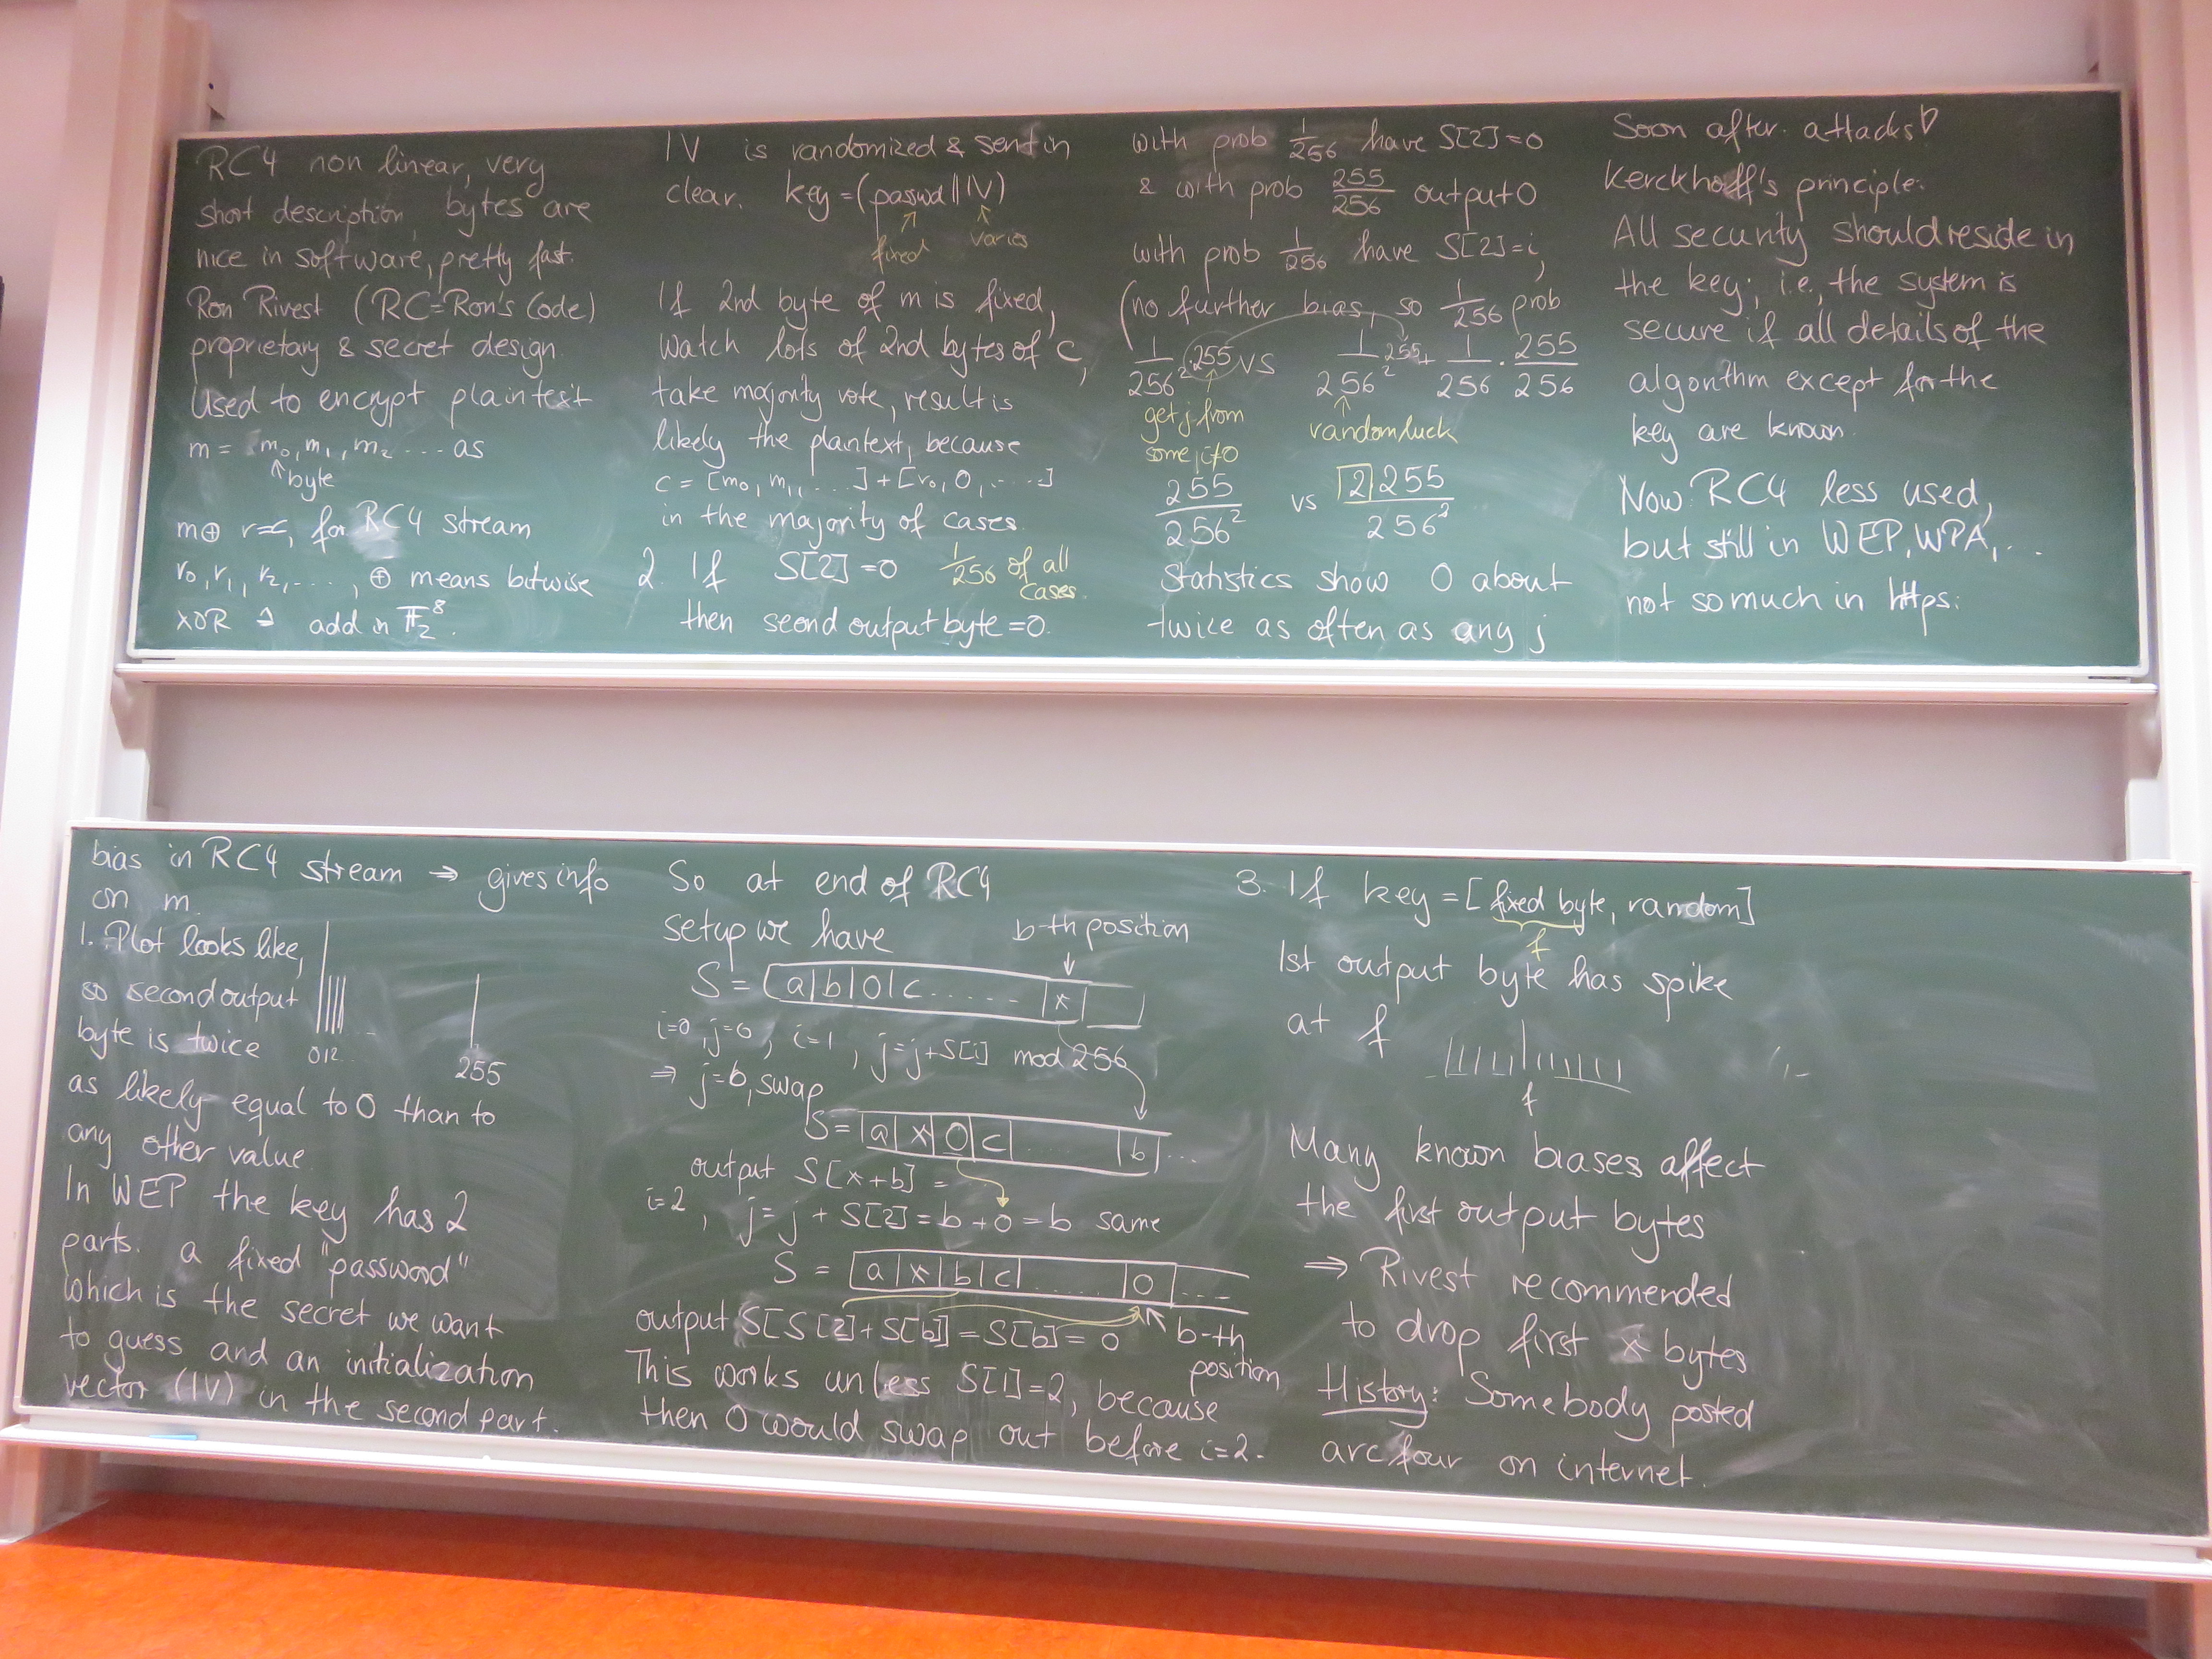 RC4 non linear, very
short description, bytes are
nice in software, pretty fast.
Ron Rivest (RC=Ron's Code)
proprietary & secret design.
Used to encrypt plaintext
m = m₀, m₁, m₂ ... as
↑ byte
m⊕ r=c, for RC4 stream
r₀, r₁, r₂, ...., ⊕ means bitwise
XOR ≙ add in 𝔽₂⁸.
IV is randomized & sent in
clear. key = (passwd||IV)
fixed varies
If 2nd byte of m is fixed,
watch lots of 2nd bytes of c,
take majority vote, result is
likely the plantext, because
c = [m₀, m₁, ....] + [r₀, 0, .....]
in the majority of cases.
2. If S[2] = 0 1/256 of all
cases.
then seond output byte = 0.
with prob 1/256 have S[2]=0
& with prob 255/256 output 0
with prob 1/256 have S[2]=i,
(no further bias, so 1/256 prob
1/256² · 255 vs 1/256² 255 + 1/256 · 255/256
get j from random luck
some i≠0
255/256² vs 2 255/256²
Statistics show 0 about
twice as often as any j
Soon after: attacks!
Kerckhoff's principle:
All security should reside in
the key; i.e., the system is
secure if all details of the
algorithm except for the
key are known.
Now RC4 less used,
but still in WEP, WPA, ...
not so much in https:
bias in RC4 stream ⇒ gives info
on m.
1. Plot looks like,
so second output
byte is twice 012..
255
as likely equal to 0 than to
any other value.
In WEP the key has 2
parts: a fixed "password"
which is the secret we want
to guess and an initialization
vector (IV) in the second part.
So at end of RC4
setup we have b-th position
S = (a|b|0|c ...... |x|
i=0, j=0, i=1, j=j+S[i] mod 256
⇒ j=b, swap
S=|a|x|0|c| |b| ...
output S[x+b] =
i=2, j=j+S[2]=b+0=b same
S = |a|x|b|c| .... |0| ...
output S[S[2]+S[b]]=S[b]=0 b-th
position
This works unless S[1]=2, because
then 0 would swap out before i=2.
3. If key = [fixed byte, random]
f
1st output byte has spike
at f
f
Many known biases affect
the first output bytes
⇒ Rivest recommended
to drop first x bytes
History: Somebody posted
arc four on internet.